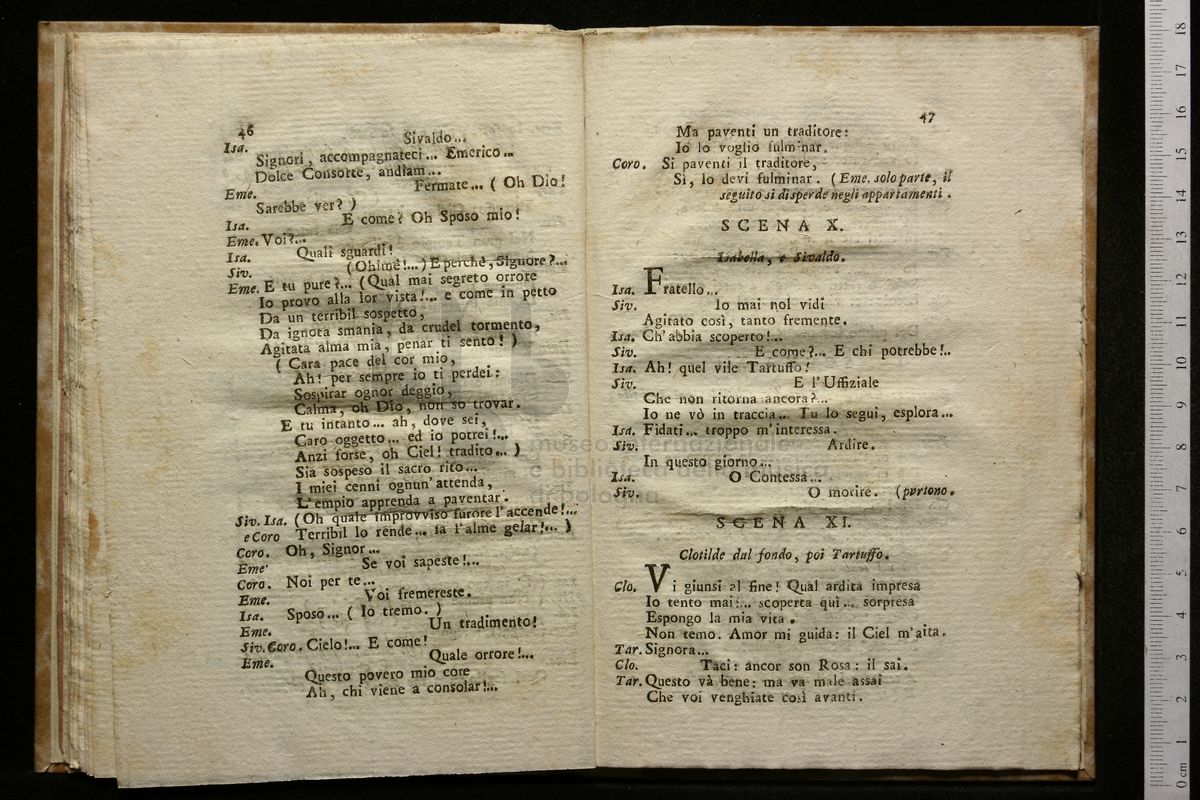 46
Sivaldo...
Isa. Signori, accompagnateci... Emerico...
Dolce Consorte, andiam...
Eme. Fermate... ( Oh Dio!
Sarebbe ver? )
Isa. E come? Oh Sposo mio!
Eme. Voi?...
Isa. Quali sguardi!
Siv. (Ohimè!...) E perchè, Signore?...
Eme. E tu pure?... (Qual mai segreto orrore
Io provo alla lor vista!... e come in petto
Da un terribil sospetto,
Da ignota smania, da crudel tormento,
Agitata alma mia, penar ti sento! )
( Cara pace del cor mio,
Ah! per sempre io ti perdei:
Sospirar ognor deggio,
Calma, oh Dio, non so trovar.
E tu intanto... ah, dove sei,
Caro oggetto... ed io potrei!...
Anzi forse, oh Ciel! tradito... )
Sia sospeso il sacro rito...
I miei cenni ognun' attenda,
L'empio apprenda a paventar.
Siv. Isa. (Oh quale improvviso furore l'accende!...
e Coro Terribil lo rende... fa l'alme gelar!... )
Coro. Oh, Signor...
Eme. Se voi sapeste!...
Coro. Noi per te...
Eme. Voi fremereste.
Isa. Sposo... ( Io tremo. )
Eme. Un tradimento!
Siv. Coro. Cielo!... E come!
Eme. Quale orrore!...
Questo povero mio core
Ah, chi viene a consolar!...
47
Ma paventi un traditore:
Io lo voglio fulminar.
Coro. Si paventi il traditore,
Sì, lo devi fulminar. (Eme. solo parte, il
seguito si disperde negli appartamenti.
SCENA X.
Isabella, e Sivaldo.
Isa. Fratello...
Siv. Io mai nol vidi
Agitato così, tanto fremente.
Isa. Ch'abbia scoperto!...
Siv. E come?... E chi potrebbe!..
Isa. Ah! quel vile Tartuffo!
Siv. E l'Uffiziale
Che non ritorna ancora?...
Io ne vò in traccia... Tu lo segui, esplora...
Isa. Fidati... troppo m'interessa.
Siv. Ardire.
In questo giorno...
Isa. O Contessa...
Siv. O morire. (partono.
SCENA XI.
Clotilde dal fondo, poi Tartuffo.
Clo. Vi giunsi al fine! Qual ardita impresa
Io tento mai!... scoperta quì... sorpresa
Espongo la mia vita.
Non temo. Amor mi guida: il Ciel m'aita.
Tar. Signora...
Clo. Taci: ancor son Rosa: il sai.
Tar. Questo và bene: ma va male assai
Che voi venghiate così avanti.
museo internazionale
e biblioteca della musica
di bologna
0 cm 1 2 3 4 5 6 7 8 9 10 11 12 13 14 15 16 17 18